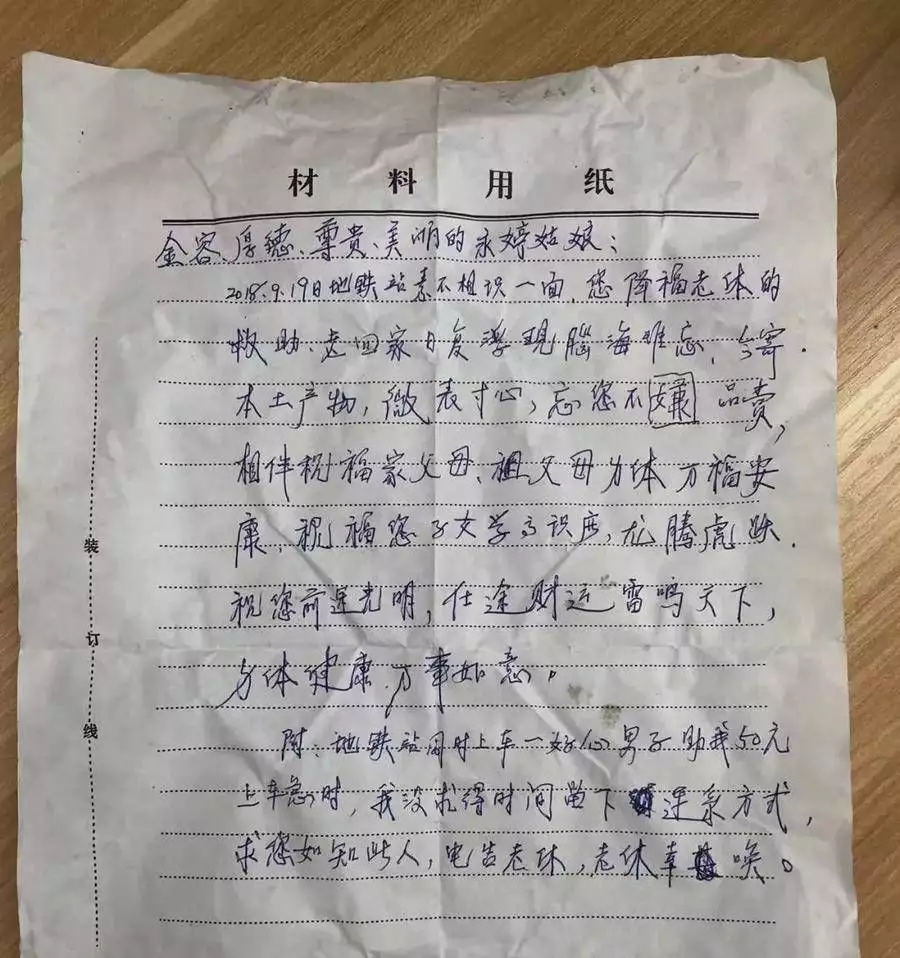 材料用纸
金容、厚德、尊贵、美丽的永婷姑娘:
2018.9.19日地铁站素不相识一面,您降福老体的
救助、老回家日复浮现脑海难忘,今寄
本土产物,微表寸心,忘您不嫌 品赏,
相伴祝福家父母、祖父母身体万福安
康,祝福您子女学高识广,龙腾虎跃.
祝您前途光明,仕途财运雷鸣天下,
身体健康.万事如意。
附:地铁站同时上车一好心男子助我50元
上车急时,我没求得时间留下 连系方式,
求您如知此人,电告老体,老体 唤。
装
订
线